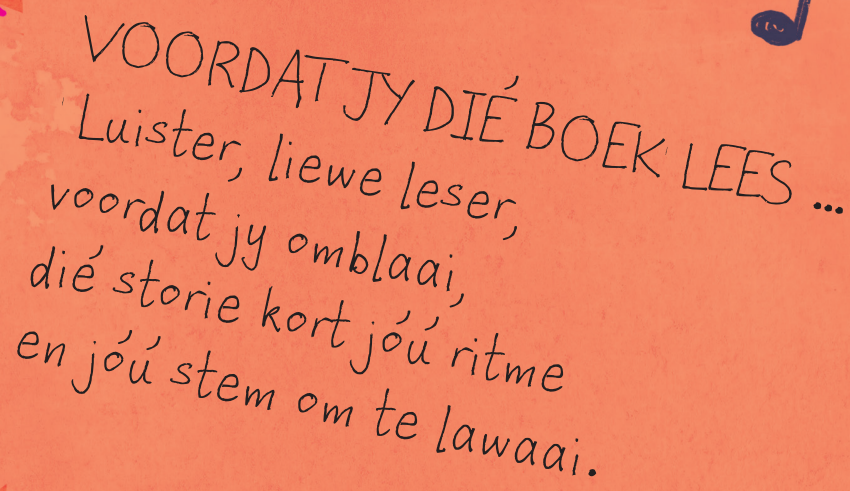 VOORDAT JY DIÉ BOEK LEES ...
Luister, liewe leser,
voordat jy omblaai,
dié storie kort jóú ritme
en jóú stem om te lawaai.